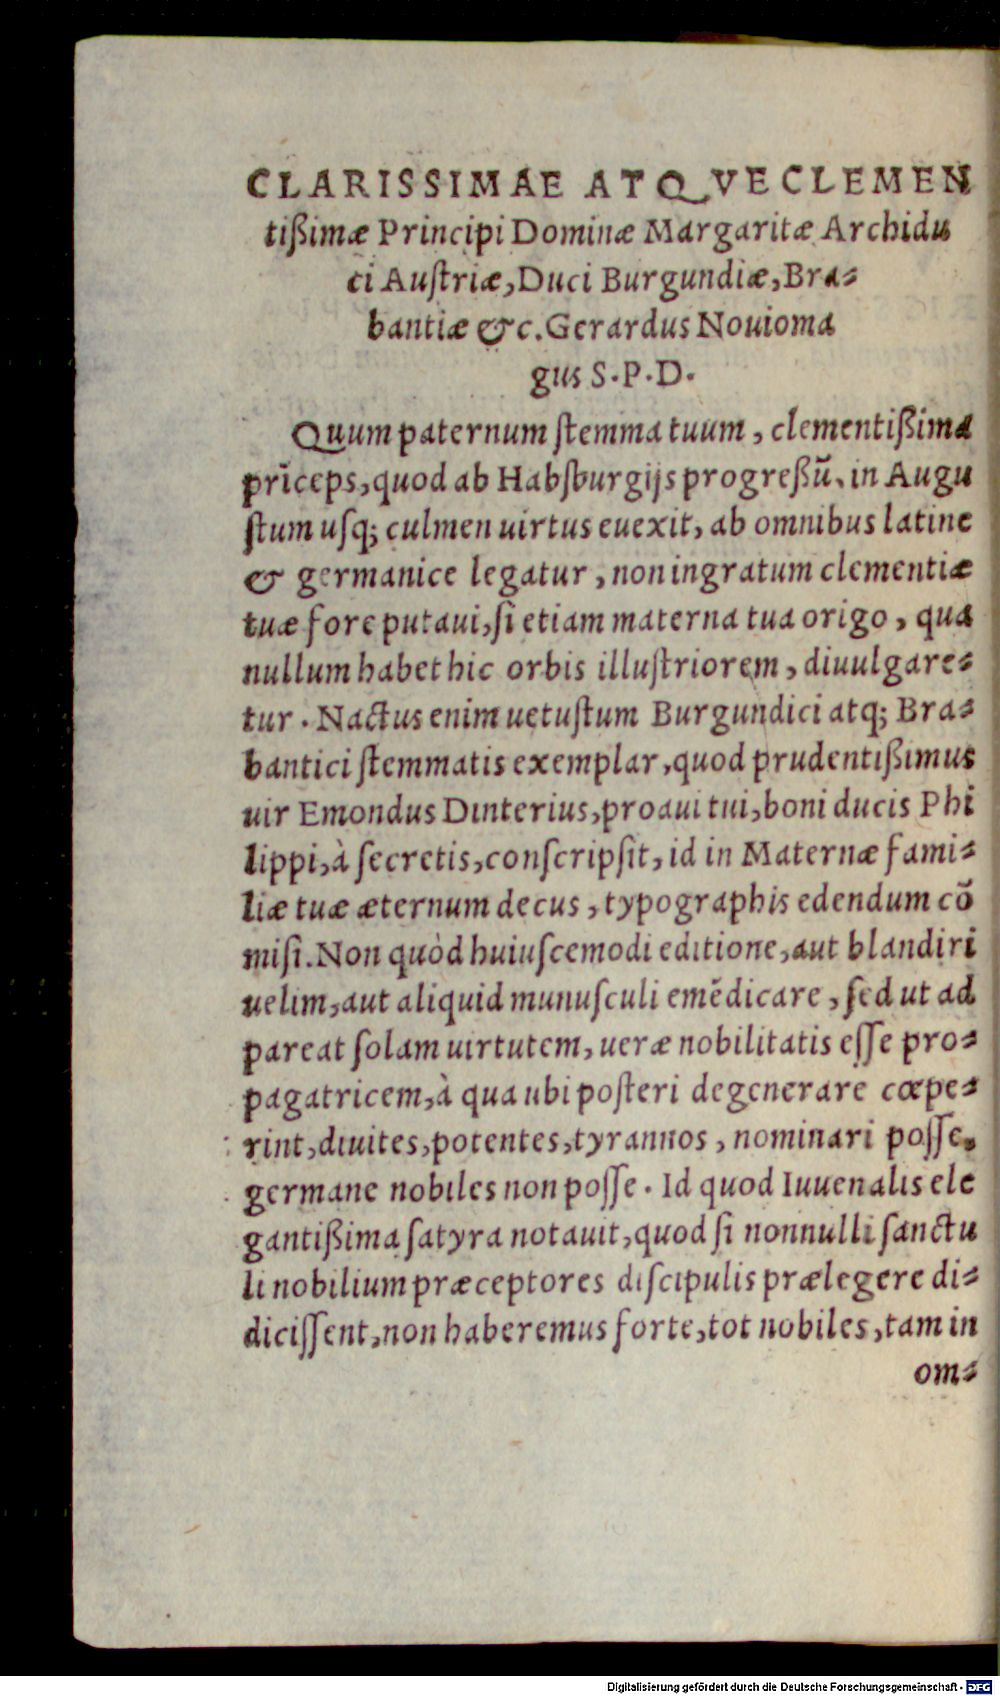 CLARISSIMAE ATQVE CLEMEN
tißimæ Principi Dominæ Margaritæ Archidu
ci Auſtriæ, Duci Burgundiæ, Bra-
bantiæ &c. Gerardus Nouioma
gus S.P.D.
Quum paternum ſtemma tuum, clementißima
prīceps, quod ab Habſburgijs progreßū, in Augu
ſtum uſq; culmen uirtus euexit, ab omnibus latine
& germanice legatur, non ingratum clementiæ
tuæ fore putaui, ſi etiam materna tua origo, qua
nullum habet hic orbis illuſtriorem, diuulgare-
tur. Nactus enim uetuſtum Burgundici atq; Bra-
bantici ſtemmatis exemplar, quod prudentißimus
uir Emondus Dinterius, proaui tui, boni ducis Phi
lippi, à ſecretis, conſcripſit, id in Maternæ fami-
liæ tuæ æternum decus, typographis edendum cō
miſi. Non quòd huiuſcemodi editione, aut blandiri
uelim, aut aliquid munuſculi emēdicare, ſed ut ad
pareat ſolam uirtutem, ueræ nobilitatis eſſe pro-
pagatricem, à qua ubi poſteri degenerare cœpe-
rint, diuites, potentes, tyrannos, nominari poſſe,
germane nobiles non poſſe. Id quod Iuuenalis ele
gantißima ſatyra notauit, quod ſi nonnulli ſanctu
li nobilium præceptores diſcipulis prælegere di-
diciſſent, non haberemus forte, tot nobiles, tam in
om-
Digitalisierung gefördert durch die Deutsche Forschungsgemeinschaft - DFG